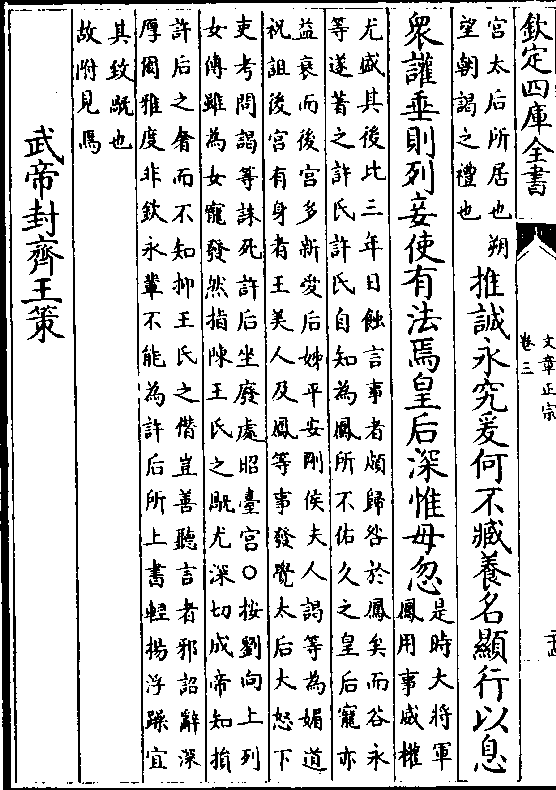 欽定四庫全書
文章正宗
卷三
宮太后所居也朔
望朝謁之禮也
推誠永究爰何不臧養名顯行以息
衆讙垂則列妾使有法焉皇后深惟毋忽
是時大將軍
鳳用事威權
尤盛其後比三年日蝕言事者頗歸咎於鳳矣而谷永
等遂著之許氏許氏自知為鳳所不佑久之皇后寵亦
益衰而後宮多新愛后姊平安剛侯夫人謁等為媚道
祝詛後宮有身者王美人及鳳等事發覺太后大怒下
吏考問謁等誅死許后坐廢處昭臺宮○按劉向上列
女傳雖為女寵發然指陳王氏之旤尤深切成帝知損
許后之奢而不知抑王氏之僭豈善聽言者邪詔辭深
厚爾雅度非欽永輩不能為許后所上書輕揚浮躁宜
其致旤也
故附見焉
武帝封齊王策